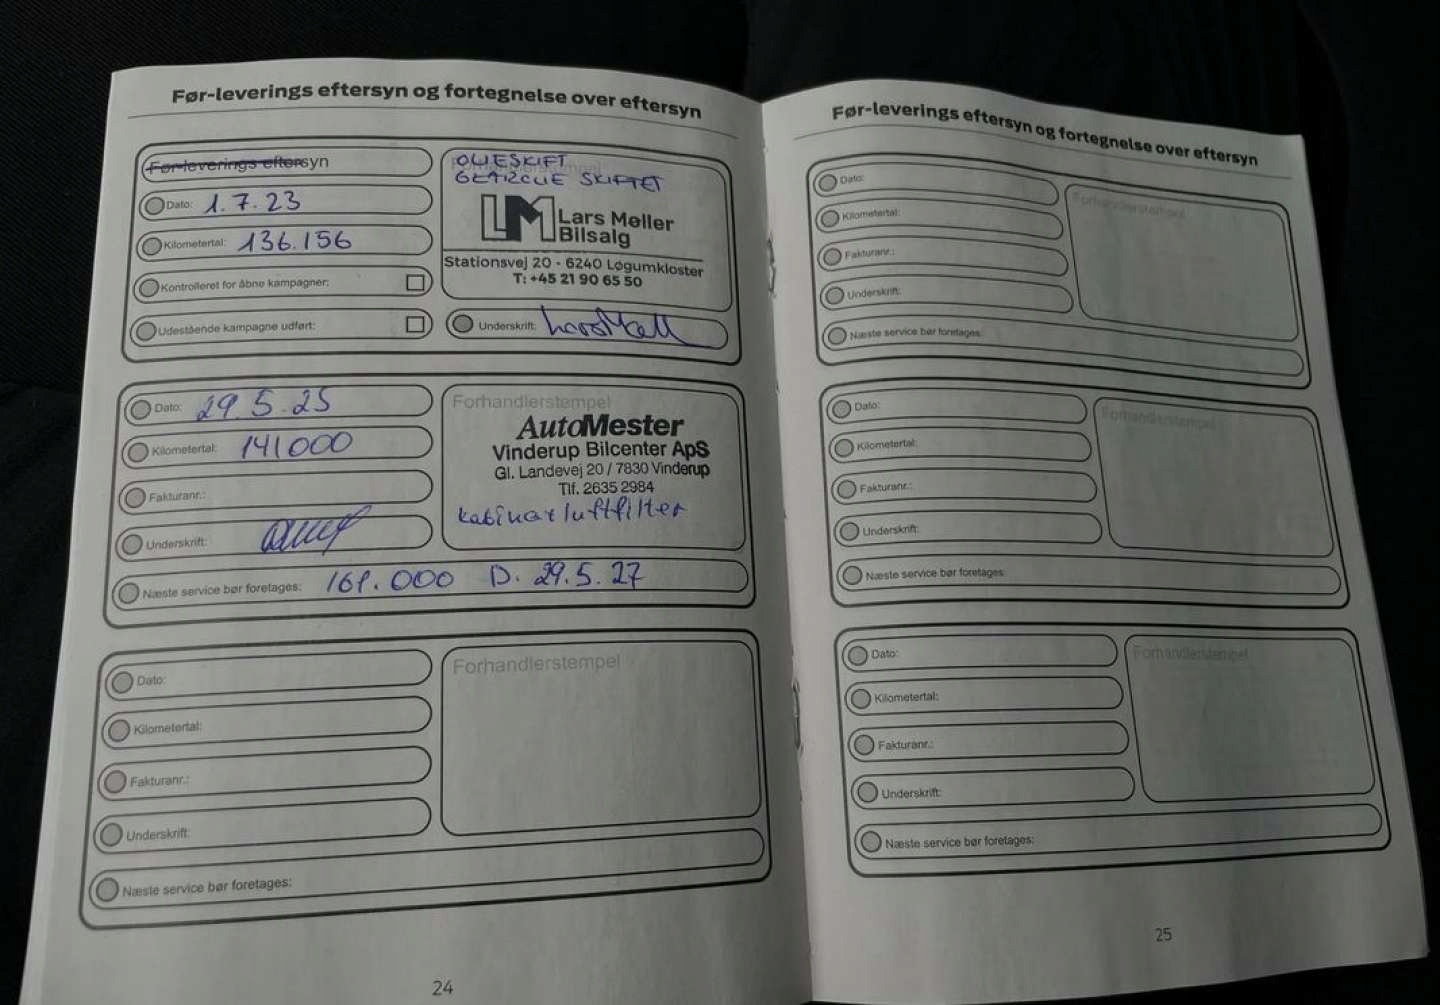 Før-leverings eftersyn og fortegnelse over eftersyn
Før-leverings eftersyn
Dato: 1.7.23
Kilometertal: 136.156
Kontrolleret for åbne kampagner:
Udestående kampagne udført:
Forhandlerstempel
OLIESKIFT
GEAROLIE SKIFTET
LM Lars Møller
Bilsalg
Stationsvej 20 - 6240 Løgumkloster
T: +45 21 90 65 50
Underskrift:
Dato: 29.5.25
Kilometertal: 141000
Fakturanr.:
Underskrift:
Forhandlerstempel
AutoMester
Vinderup Bilcenter ApS
Gl. Landevej 20 / 7830 Vinderup
Tlf. 2635 2984
kabine+luftfilter
Næste service bør foretages: 161.000 D. 29.5.27
Dato:
Kilometertal:
Fakturanr.:
Underskrift:
Forhandlerstempel
Næste service bør foretages:
24
Før-leverings eftersyn og fortegnelse over eftersyn
Dato:
Kilometertal:
Fakturanr.:
Underskrift:
Forhandlerstempel
Næste service bør foretages:
Dato:
Kilometertal:
Fakturanr.:
Underskrift:
Forhandlerstempel
Næste service bør foretages:
Dato:
Kilometertal:
Fakturanr.:
Underskrift:
Forhandlerstempel
Næste service bør foretages:
25